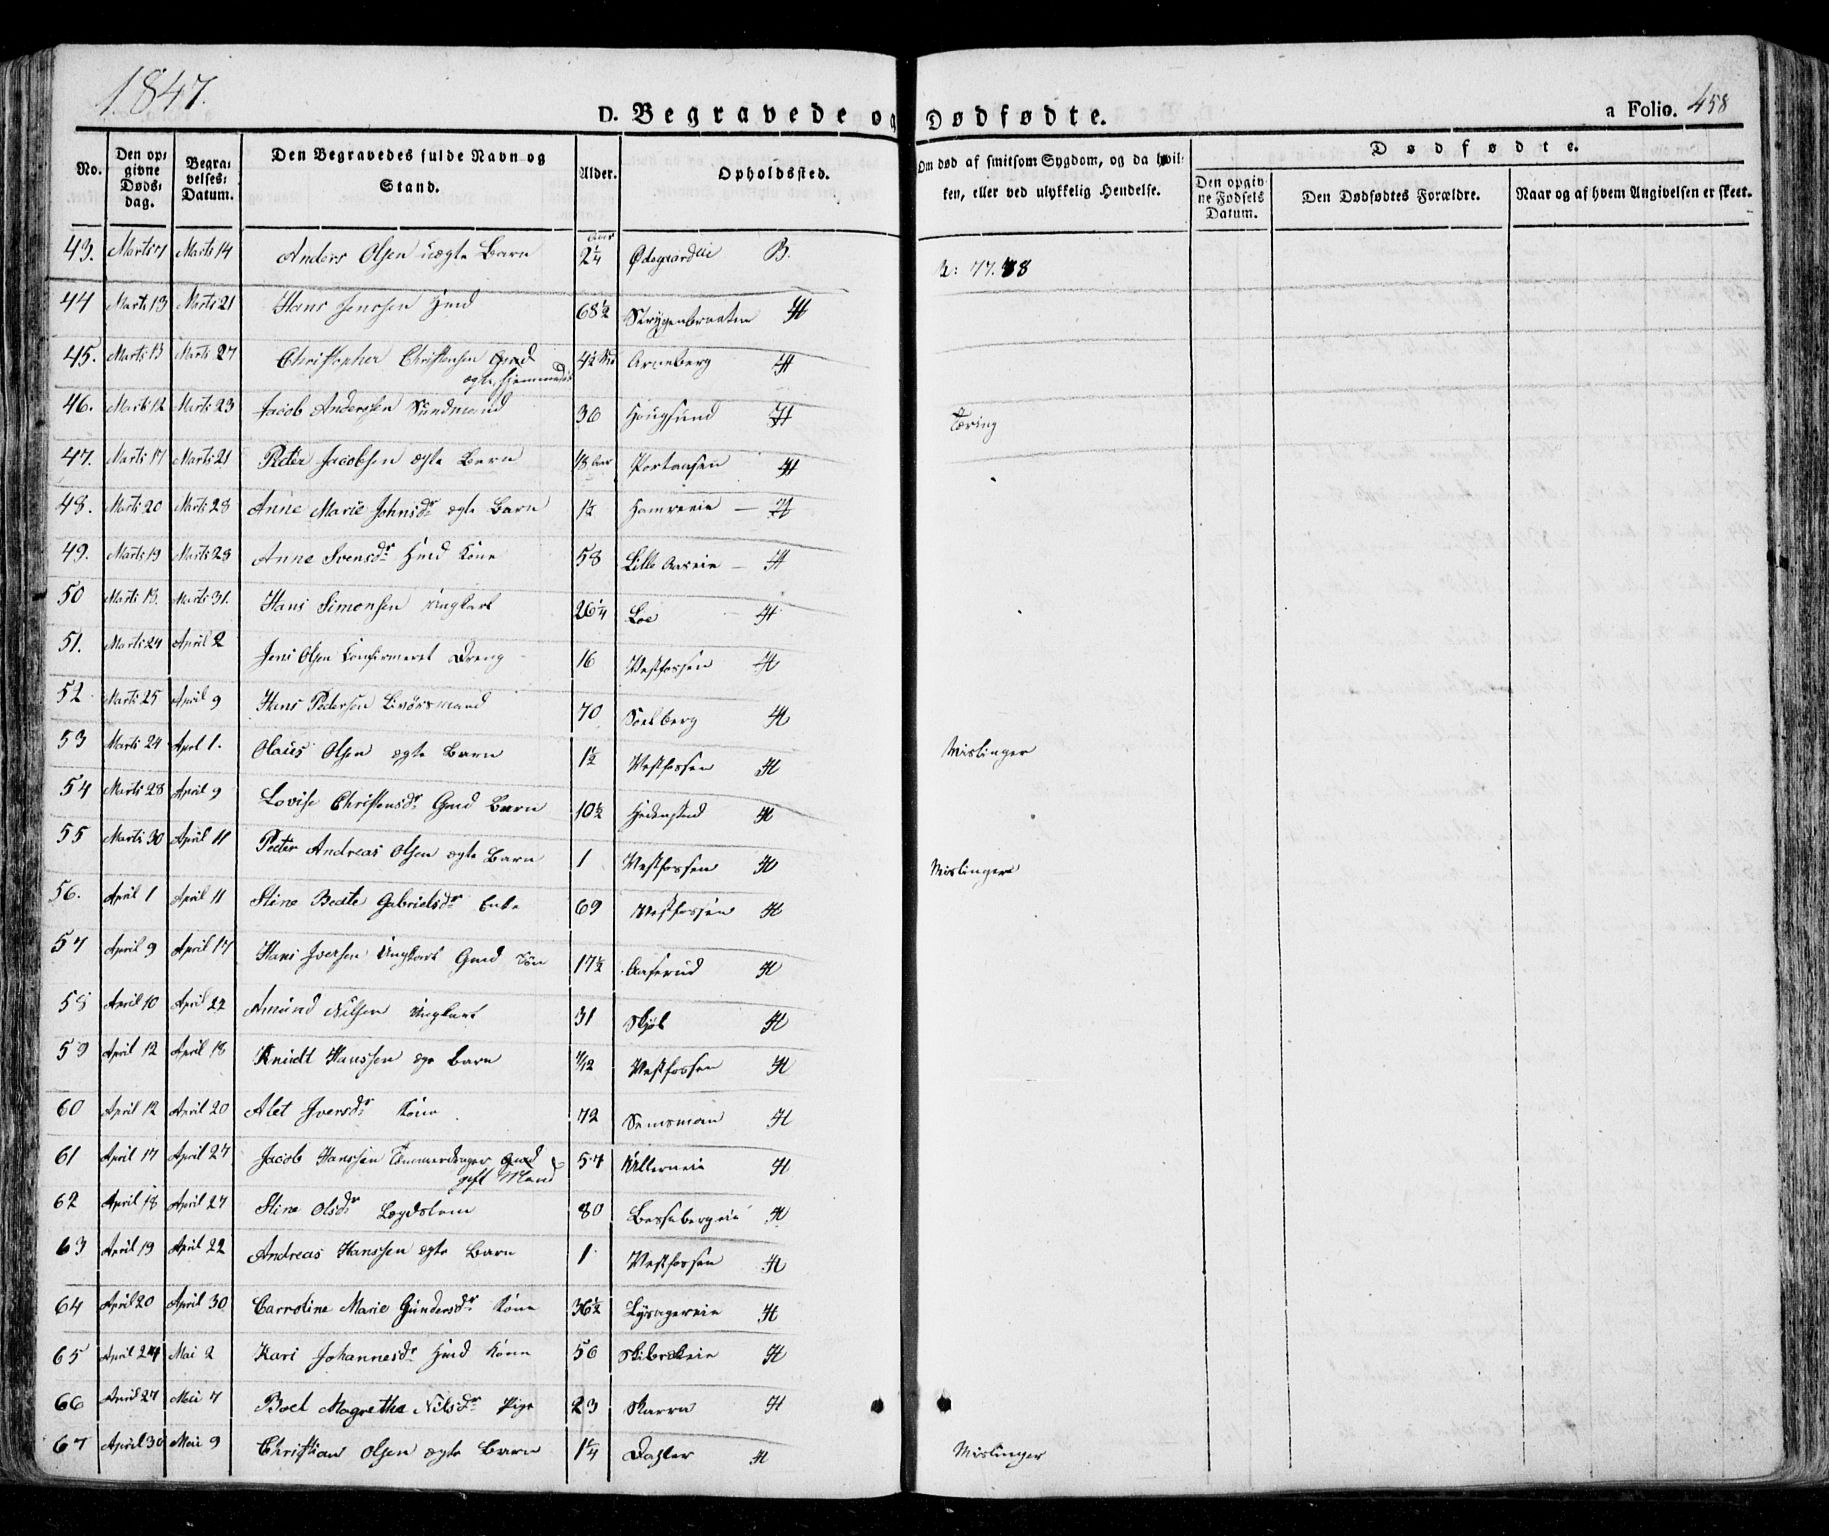 1847.
D. Begravede og Dødfødte.
a Folio. 458
No. | Den opgivne Dødsdag. | Begravelses Datum. | Den Begravedes fulde Navn og Stand. | Alder. | Opholdssted. | Om død af smitsom Sygdom, og da hvilken, eller ved ulykkelig Hendelse. | Dødfødte. | Den opgivne Fødsels Datum. | Den Dødfødtes Forældre. | Naar og af hvem Angivelsen er skeet.
43. Marts 7 Marts 14 Anders Olsen uægte Barn Aar 2 1/4 Ødegaardeie B.
44 Marts 13 Marts 21 Hans Jenssen Hmd 68 1/2 Strygenbraaten H
45. Marts 13 Marts 27 Christopher Christensen Gmd 42 Arneberg H
46. Marts 12 Marts 23 Jacob Anderssen Sundmand 36 Hougsund H Tæring
47. Marts 17 Marts 21 Peter Jacobsen ægte Barn 18 Portaasen H
48. Marts 20 Marts 28 Anne Marie Johnsdr ægte Barn 1 1/2 Hamreeie H
49. Marts 19 Marts 28 Anne Svensdr Hmd Kone 58 Lille Aaseie H
50 Marts 13. Marts 31. Hans Simonsen Ungkarl 26 1/4 Loe H
51. Marts 24 April 2 Jens Olsen Confirmeret Dreng 16 Vestfossen H
52 Marts 25 April 9 Hans Pedersen Livørsmand 70 Soelberg H
53 Marts 24 Aprl 1. Olaus Olsen ægte Barn 1 1/2 Vestfossen H Mislinger
54 Marts 28 April 9 Lovise Christensdr Gmd Barn 10 1/2 Hedenstad H
55 Marts 30 April 11 Peter Andreas Olsen ægte Barn 1 Vestfossen H Mislinger
56. April 1 April 11 Stine Beate Gabrielsdr Enke 69 Vestfossen H
57 April 9 April 17 Hans Iversen Ungkarl Gmd Søn 17 1/2 Aaserud H
58 April 10 April 22 Amund Nilsen Ungkarl 31 Skjøl H
59 April 12 April 18 Knudt Hanssen ægte Barn 11/12 Vestfossen H
60 April 12 April 20 Alet Iversdr Kone 72 Semsmoen H
61 April 17 April 27 Jacob Hanssen Tømmerdrager Gmd gift Mand 54 Ullerneie H
62 April 18 April 27 Stine Olsdr Lægdslem 80 Besseberg eie H
63 April 19 April 22 Andreas Hanssen ægte Barn 1 Vestfossen H
64 April 20 April 30 Carroline Marie Gundersdr Kone 36 1/2 Lysagereie H
65 April 24 Mai 2 Kari Johannesdr Hmd Kone 56 H
66 April 27 Mai 7 Boel Magrethe Nilsdr Pige 23 Skarra H
67 April 30 Mai 9 Christian Olsen ægte Barn 1 1/4 Dahler H Mislinger